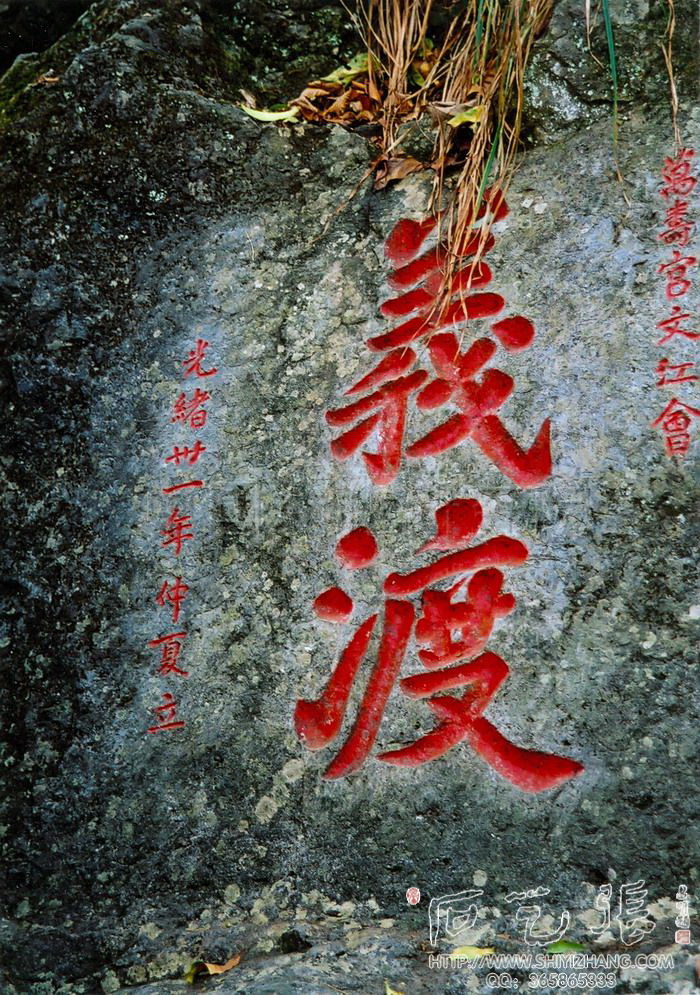 萬壽宮文江會
義渡
光緒卅一年仲夏立
張藝石
HTTP://WWW.SHIYIZHANG.COM
QQ：365865333